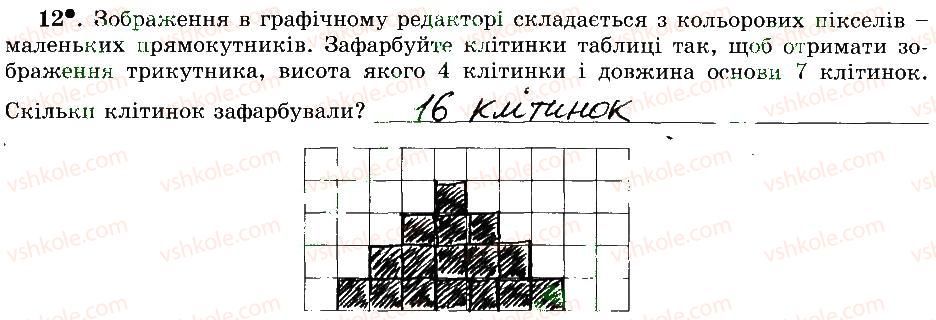 12●. Зображення в графічному редакторі складається з кольорових пікселів –
маленьких прямокутників. Зафарбуйте клітинки таблиці так, щоб отримати зо-
браження трикутника, висота якого 4 клітинки і довжина основи 7 клітинок.
Скільки клітинок зафарбували? 16 клітинок
vshkole.com vshkole.com vshkole.com vshkole.com
vshkole.com vshkole.com vshkole.com vshkole.com
vshkole.com vshkole.com vshkole.com vshkole.com